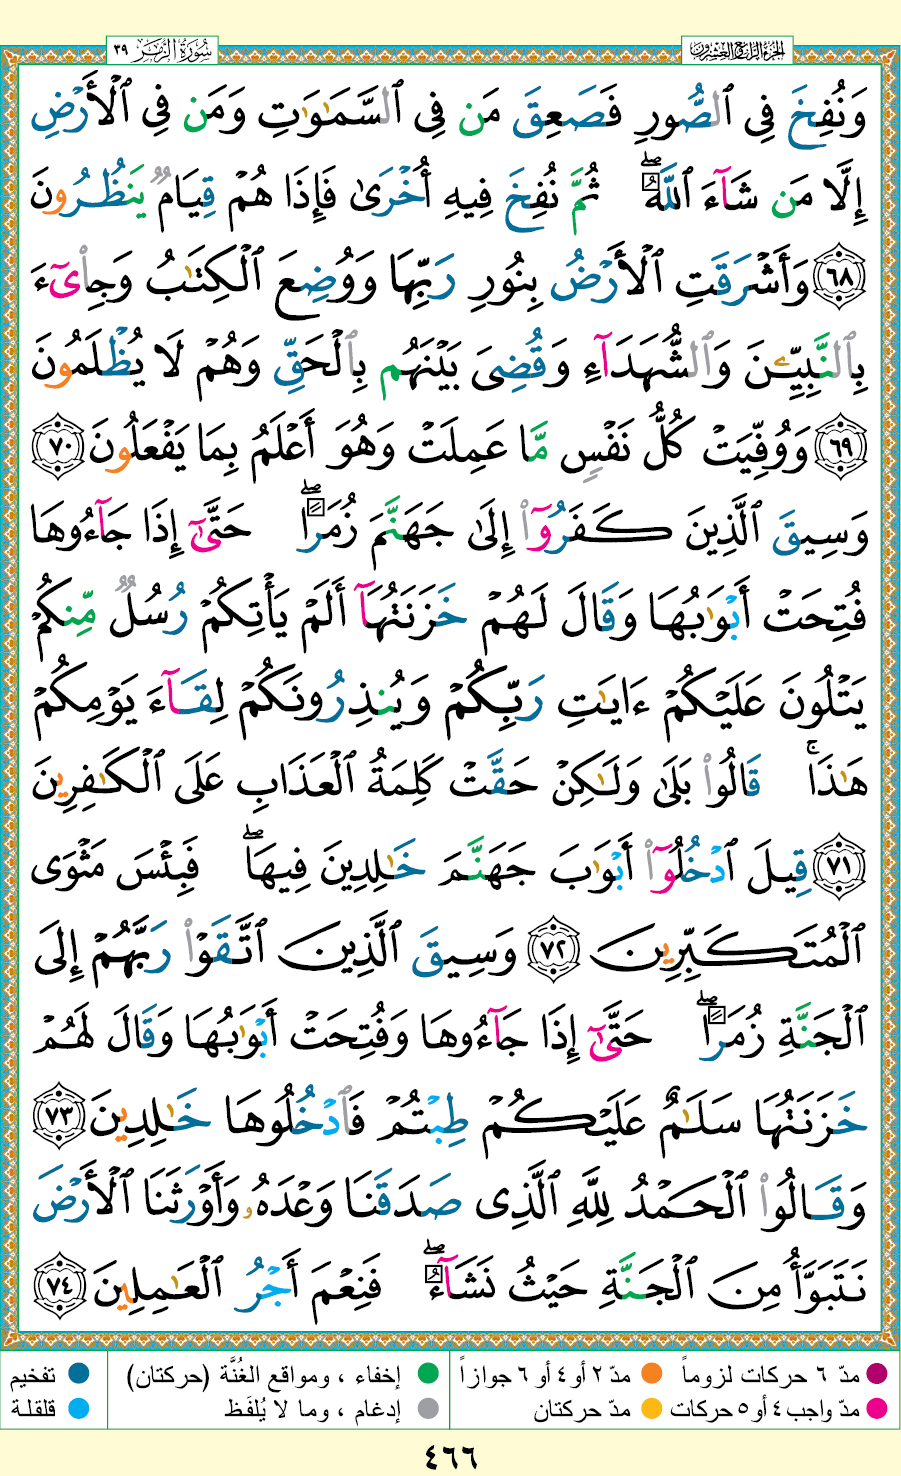 سُورَةُ الزُّمَر ٣٩
الجزء الرابع والعشرون
وَنُفِخَ فِي ٱلصُّورِ فَصَعِقَ مَن فِي ٱلسَّمَٰوَٰتِ وَمَن فِي ٱلْأَرْضِ
إِلَّا مَن شَآءَ ٱللَّهُ ۖ ثُمَّ نُفِخَ فِيهِ أُخْرَىٰ فَإِذَا هُمْ قِيَامٌ يَنظُرُونَ
﴿٦٨﴾ وَأَشْرَقَتِ ٱلْأَرْضُ بِنُورِ رَبِّهَا وَوُضِعَ ٱلْكِتَٰبُ وَجِا۟ىٓءَ
بِٱلنَّبِيِّۦنَ وَٱلشُّهَدَآءِ وَقُضِىَ بَيْنَهُم بِٱلْحَقِّ وَهُمْ لَا يُظْلَمُونَ
﴿٦٩﴾ وَوُفِّيَتْ كُلُّ نَفْسٍ مَّا عَمِلَتْ وَهُوَ أَعْلَمُ بِمَا يَفْعَلُونَ ﴿٧٠﴾
وَسِيقَ ٱلَّذِينَ كَفَرُوٓا۟ إِلَىٰ جَهَنَّمَ زُمَرًا ۖ حَتَّىٰٓ إِذَا جَآءُوهَا
فُتِحَتْ أَبْوَٰبُهَا وَقَالَ لَهُمْ خَزَنَتُهَآ أَلَمْ يَأْتِكُمْ رُسُلٌ مِّنكُمْ
يَتْلُونَ عَلَيْكُمْ ءَايَٰتِ رَبِّكُمْ وَيُنذِرُونَكُمْ لِقَآءَ يَوْمِكُمْ
هَٰذَا ۚ قَالُوا۟ بَلَىٰ وَلَٰكِنْ حَقَّتْ كَلِمَةُ ٱلْعَذَابِ عَلَى ٱلْكَٰفِرِينَ
﴿٧١﴾ قِيلَ ٱدْخُلُوٓا۟ أَبْوَٰبَ جَهَنَّمَ خَٰلِدِينَ فِيهَا ۖ فَبِئْسَ مَثْوَى
ٱلْمُتَكَبِّرِينَ ﴿٧٢﴾ وَسِيقَ ٱلَّذِينَ ٱتَّقَوْا۟ رَبَّهُمْ إِلَى
ٱلْجَنَّةِ زُمَرًا ۖ حَتَّىٰٓ إِذَا جَآءُوهَا وَفُتِحَتْ أَبْوَٰبُهَا وَقَالَ لَهُمْ
خَزَنَتُهَا سَلَٰمٌ عَلَيْكُمْ طِبْتُمْ فَٱدْخُلُوهَا خَٰلِدِينَ ﴿٧٣﴾
وَقَالُوا۟ ٱلْحَمْدُ لِلَّهِ ٱلَّذِى صَدَقَنَا وَعْدَهُۥ وَأَوْرَثَنَا ٱلْأَرْضَ
نَتَبَوَّأُ مِنَ ٱلْجَنَّةِ حَيْثُ نَشَآءُ ۖ فَنِعْمَ أَجْرُ ٱلْعَٰمِلِينَ ﴿٧٤﴾
مدّ ٦ حركات لزوماً مدّ ٢ أو ٤ أو ٦ جوازاً إخفاء ، ومواقع الغُنَّة (حركتان) تفخيم
مدّ واجب ٤ أو ٥ حركات مدّ حركتان إدغام ، وما لا يُلفَظ قلقلة
٤٦٦